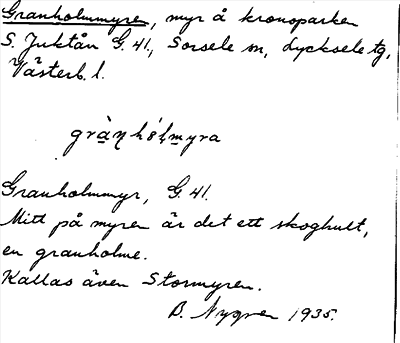 Granholmmyren, myr å kronoparken
S. Juktån G. 41, Sorsele sn, Lycksele tg,
Västerb. l.
grànhólmyra
Granholmmyr, G. 41.
Mitt på myren är det ett skoghult,
en granholme.
Kallas även Stormyren.
B. Nygren 1935.